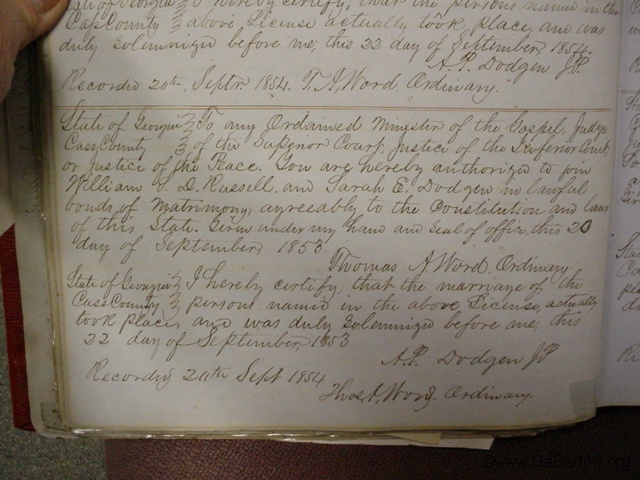 State of Georgia } I hereby certify, that the persons named in the
Cass County } above License actually took place, and was
duly solemnized before me, this 22 day of September 1854.
A. P. Dodgen JP.
Recorded 24th Septr. 1854. T. A. Word, Ordinary.
State of Georgia } To any Ordained Minister of the Gospel, Judge
Cass County } of the Superior Court, Justice of the Inferior Court
or Justice of the Peace. You are hereby authorized to join
William D. Russell, and Sarah E. Dodgen in lawful
bonds of Matrimony, agreeably to the Constitution and laws
of this State. Given under my hand and seal of office this 20
day of September 1853
Thomas A Word, Ordinary.
State of Georgia } I hereby certify, that the marriage of the
Cass County } persons named in the above License, actually
took place, and was duly Solemnized before me, this
22 day of September, 1853
A. P. Dodgen JP
Recorded 24th Sept 1854
Thos A, Word. Ordinary.
©www.GaBartow.org